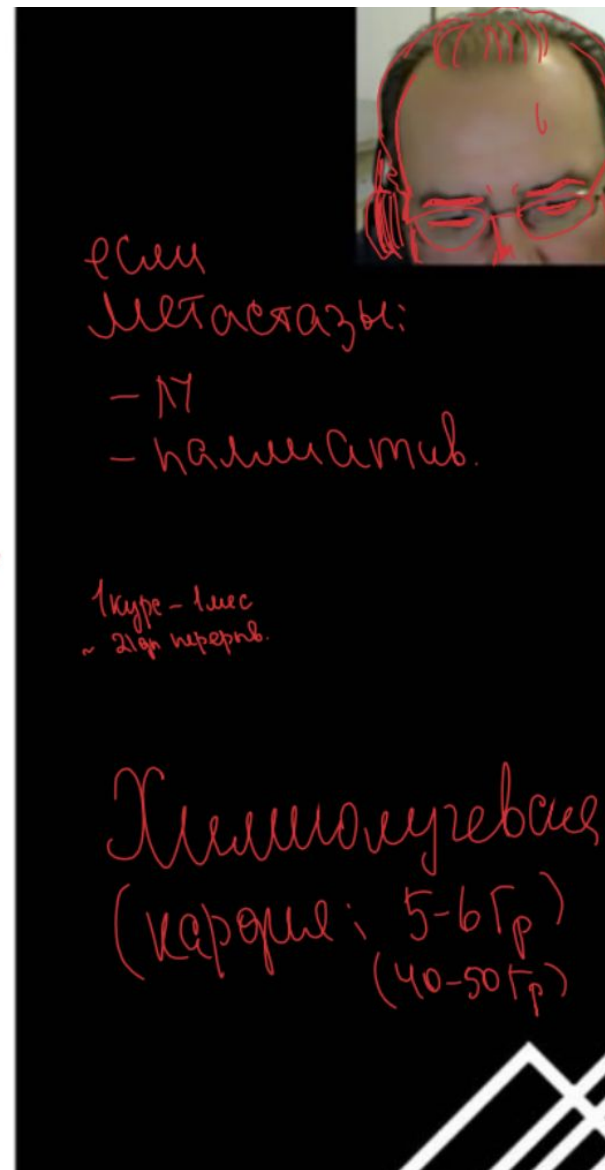 если
метастазы:
- М
- паллиатив.
1 курс - 1 мес
~ 21 дн перерыв.
Химиолучевая
(кардия: 5-6 Гр)
(40-50 Гр)